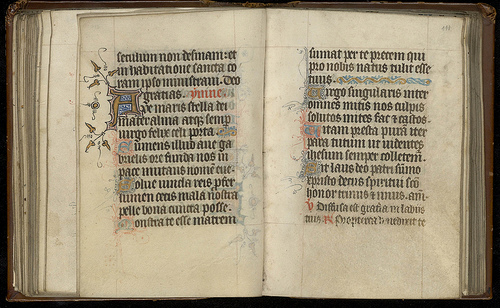 seculum non desinam: et
in habitatione sancta co
ram ipso ministravi. Deo
gratias. ymne.
Ave maris stella dei
mater alma atqz semp
virgo felix celi porta.
Sumens illud ave ga
brielis ore funda nos in
pace mutans nomen eve
Solve vincla reis pfer
lumen cecis mala nostra
pelle bona cuncta posce.
Monstra te esse matrem
sumat per te precem qui
pro nobis natus tulit esse
tuus.
Virgo singularis inter
omnes mitis nos culpis
solutos mites fac et castos.
Vitam presta pura iter
para tutum ut videntes
ihesum semper colletem.
Sit laus deo patri sumo
cristo decus spiritui sco
honor trinus et unus. am.
Diffusa est gratia in labiis
tuis Propterea benedixit te